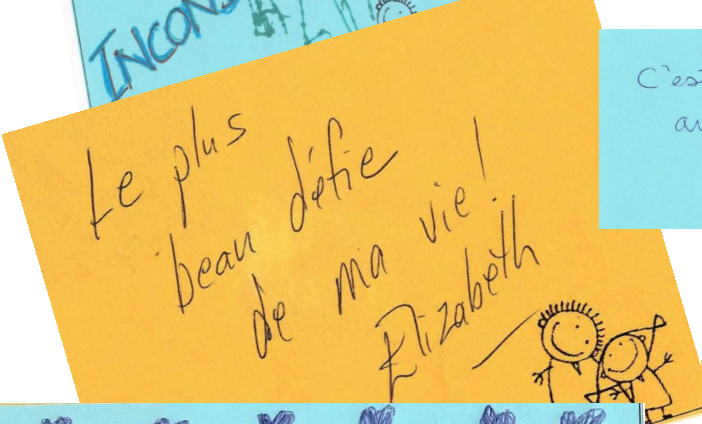 INCONS
Le plus
beau défie
de ma vie!
Elizabeth
C'es
au